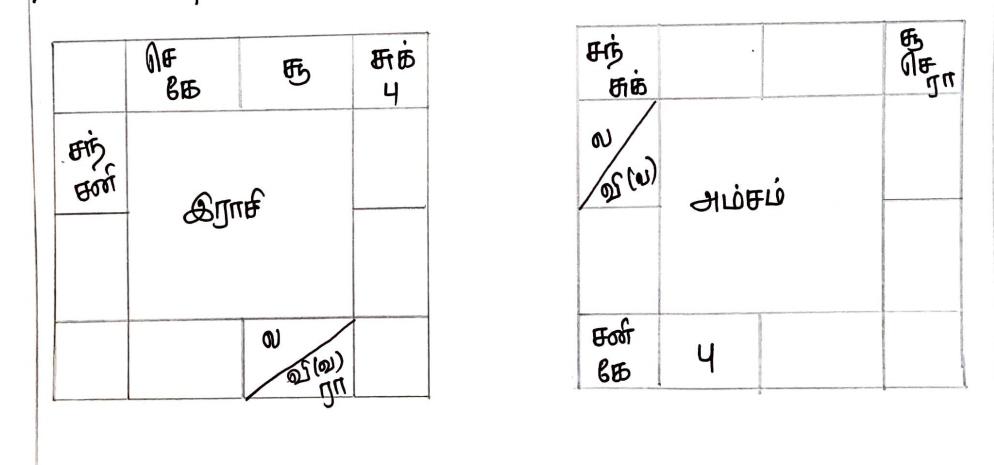 செ
கே
சூ
சுக்
பு
சந்
சனி
இராசி
ல
வி(வ)
ரா
சந்
சுக்
சூ
செ
ரா
ல
வி(வ)
அம்சம்
சனி
கே
பு